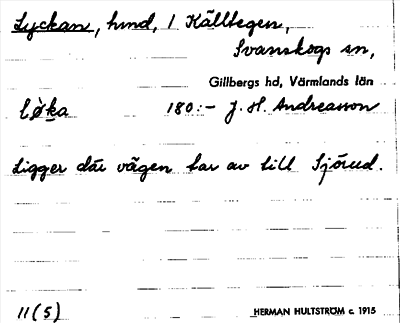 Lyckan, hmd, 1 Källtegen,
Svanskogs sn,
Gillbergs hd, Värmlands län
180:- J. H. Andreasson
Ligger där vägen tar av till Sjörud.
11(5)
HERMAN HULTSTRÖM c. 1915